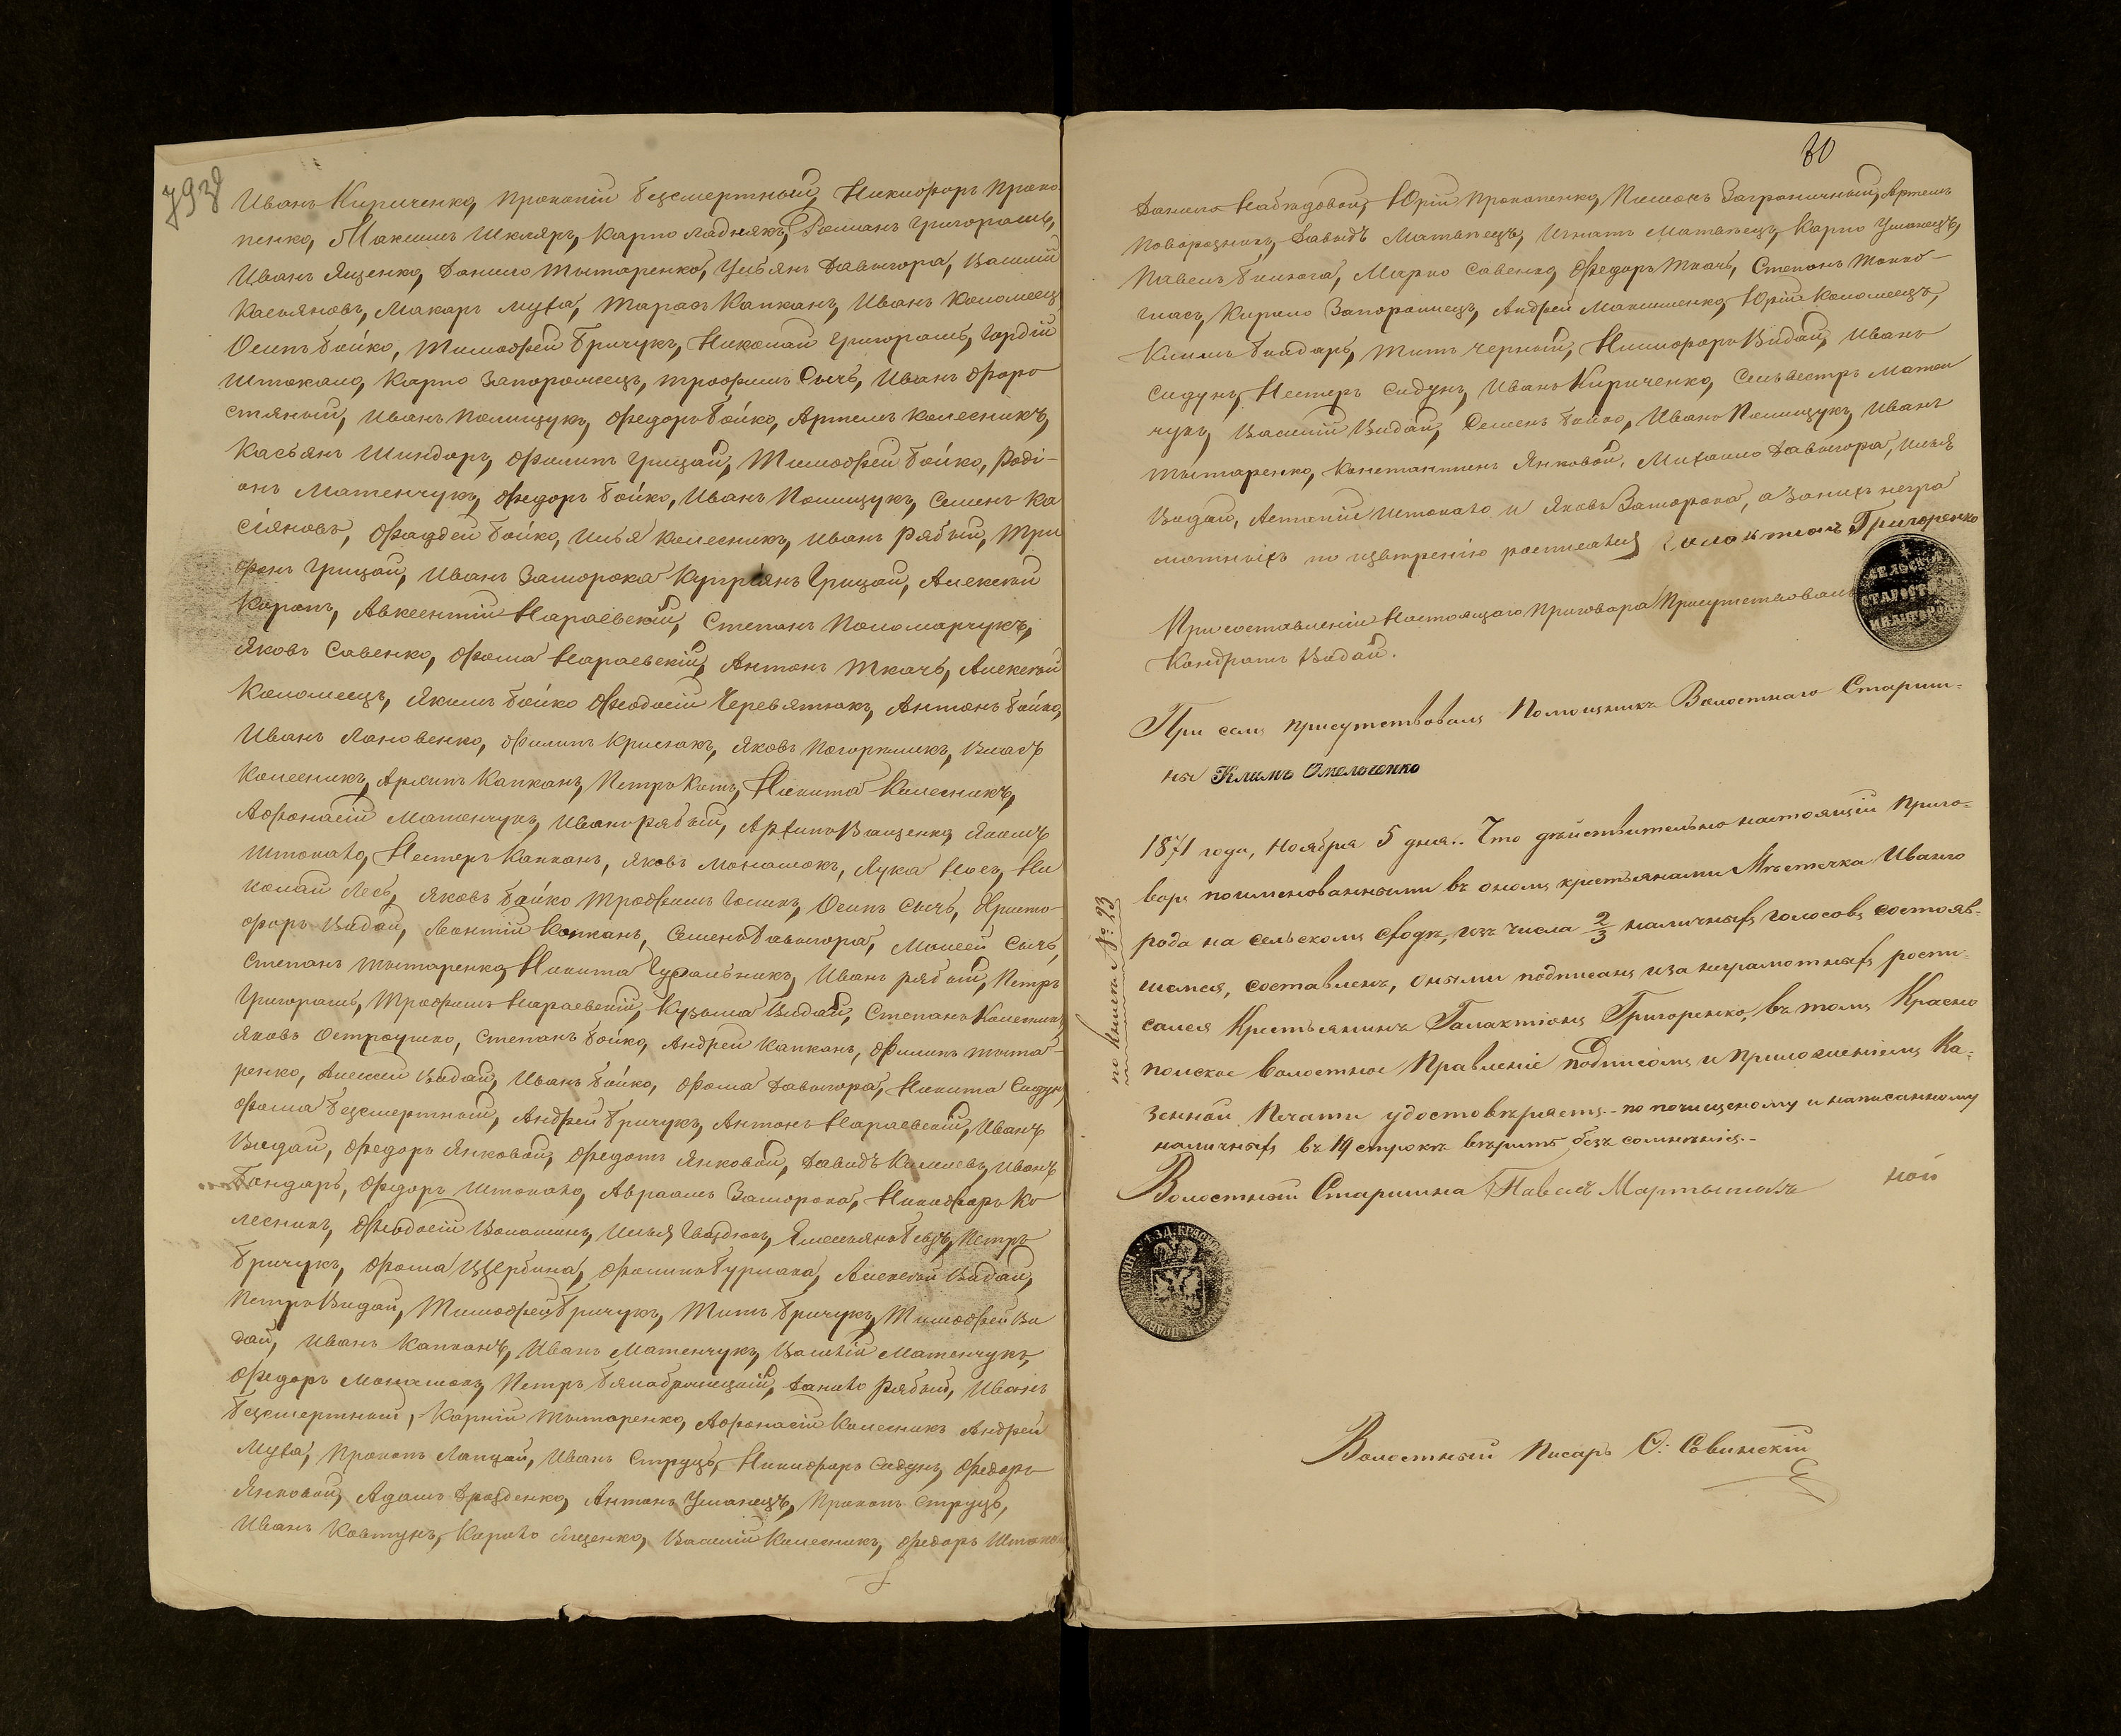 Иванъ Кириченко, Прокопій Безсмертный, Никифоръ Проко
пенко, Максимъ Шкляръ, Карпо Ладнякъ, Романъ Григорашъ,
Иванъ Ященко, Данило Тытаренко, Ульянъ Давыгора, Василій
Касьяновъ, Макаръ Муха, Тарасъ Капканъ, Иванъ Коломеец
Осипъ Бойко, Тимофей Бричукъ, Николай Григорашъ, Гордій
Штокало, Карпо Запорожецъ, Трофимъ Сычъ, Иванъ Форо
стяный, Иванъ Полищукъ, Федоръ Бойко, Артемъ Колесникъ,
Касьянъ Шиндоръ, Филипъ Грицай, Тимофей Бойко, Роді-
онъ Матенчукъ, Федоръ Бойко, Иванъ Полищукъ, Семенъ Ка
сіяновъ, Фаддей Бойко, Илья Колесникъ, Иванъ Рябый, Три
фонъ Грицай, Иванъ Заморока Купріянъ Грицай, Алексѣй
Коропъ, Авксентій Нараевскій, Степанъ Пономарчукъ,
Яковъ Савенко, Фома Нараевскій, Антонъ Ткачъ, Алексѣй
Коломеецъ, Якимъ Бойко Феодосій Черевятюкъ, Антонъ Бойко,
Иванъ Лановенко, Филипъ Крижакъ, Яковъ Погорѣликъ, Власъ
Колесникъ, Архипъ Капканъ, Петро Котъ, Никита Колесникъ,
Афонасій Матенчукъ, Иванъ Рябый, Архипъ Ващенко, Якимъ
Штокало, Нестеръ Капканъ, Яковъ Монашокъ, Лука Носъ, Ни
колай Лесь, Яковъ Бойко Трофимъ Голикъ, Осипъ Сычъ, Христо-
форъ Видай, Леонтій Капканъ, Семенъ Давыгора, Моисей Сычъ,
Степанъ Тытаренко, Никита Гузальникъ, Иванъ Рябый, Петръ
Григорашъ, Трофимъ Нараевскій, Кузьма Видай, Степанъ Колесникъ
Яковъ Остроушко, Степанъ Бойко, Андрей Капканъ, Филипъ Тыта-
ренко, Алексей Видай, Иванъ Бойко, Фома Давыгора, Никита Сидунъ,
Фома Безсмертный, Андрей Бричукъ, Антонъ Нараевскій, Иванъ
Видай, Федоръ Янковой, Федотъ Янковой, Давидъ Киселевъ, Иванъ
Бондарь, Федоръ Штокало, Авраамъ Заморока, Никифоръ Ко
лесникъ, Феодосій Волошинъ, Илья Гвоздюкъ, Петръ
Бричукъ, Фома Щербина, Филипъ Бурлака, Алексѣй Видай,
Петръ Видай, Тимофей Бричукъ, Титъ Бричукъ, Тимофей Ви
дай, Иванъ Капканъ, Иванъ Матенчукъ, Василій Матенчукъ,
Федоръ Монашокъ, Петръ Данило Рябый, Иванъ
Безсмертный, Карній Тытаренко, Афонасій Колесникъ Андрей
Муха, Прокопъ Лапцай, Иванъ Струцъ, Никифоръ Сидунъ, Федоръ
Янковой, Адамъ Дрозденко, Антонъ Уманецъ, Прокопъ Струцъ,
Иванъ Ковтунъ, Карпо Ященко, Василій Колесникъ, Федоръ Штокало
30
Данило Набчудовой, Юрій Прокопенко, Пилипъ Заграничный, Артемъ
Поворозникъ, Давыдъ Матвѣецъ, Игнатъ Матвѣецъ, Карпо Уманецъ,
Павелъ Марко Савенко, Федоръ Ткачъ, Степанъ Тонко-
гласъ, Кирило Запорожецъ, Андрей Макименко, Юрій Коломеецъ,
Климъ Бондарь, Титъ Черный, Никифоръ Видай, Иванъ
Сидунъ, Нестеръ Сидунъ, Иванъ Кириченко, Сильвестръ Матен
чукъ, Василій Видай, Семенъ Бойко, Иванъ Полищукъ, Иванъ
Тытаренко, Константинъ Янковой, Михаило Давыгора, Илья
Видай, Антоній Штокало и Яковъ Заморока, а за нихъ негра
мотныхъ по довѣренію росписался Галактіонъ Григоренко
СЕЛЬСК СТАРОСТЫ ИВАНГОРОД
При составленіи Настоящаго Приговора Присутствовалъ
Кондратъ Видай.
При семъ присутствовалъ Помощникъ Волостнаго Старши-
ны Климъ Омельченко
1871 года, Ноября 5 дня. Что дѣйствительно настоящій приго-
воръ поименованными въ ономъ крестьянами Мѣстечка Иванго
рода на сельскомъ сходѣ, изъ числа 2/3 наличныхъ голосовъ состояв-
шемся, составленъ, оными подписанъ и за неграмотныхъ роспи-
сался Крестьянинъ Галактіонъ Григоренко, въ томъ Красно
польское Волостное Правленіе подписомъ и приложеніемъ Ка-
зенной Печати удостовѣряетъ.- по почищеному и написанному
наличныхъ въ 19 строкѣ вѣрить безъ сомнѣнія.-
по книгѣ № 93
Волостный Старшина Павелъ Мартынюкъ
ной
Волостный Писарь О: Савинскій